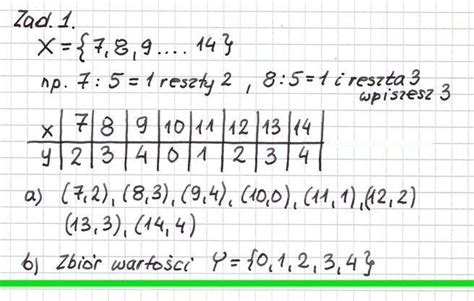 Zad. 1.
X = {7, 8, 9 .... 14}
np. 7 : 5 = 1 reszty 2 , 8 : 5 = 1 i reszta 3
wpiszesz 3
x | 7 | 8 | 9 | 10 | 11 | 12 | 13 | 14
y | 2 | 3 | 4 | 0 | 1 | 2 | 3 | 4
a) (7,2), (8,3), (9,4), (10,0), (11,1), (12,2)
(13,3), (14,4)
b) Zbiór wartości Y = {0, 1, 2, 3, 4}